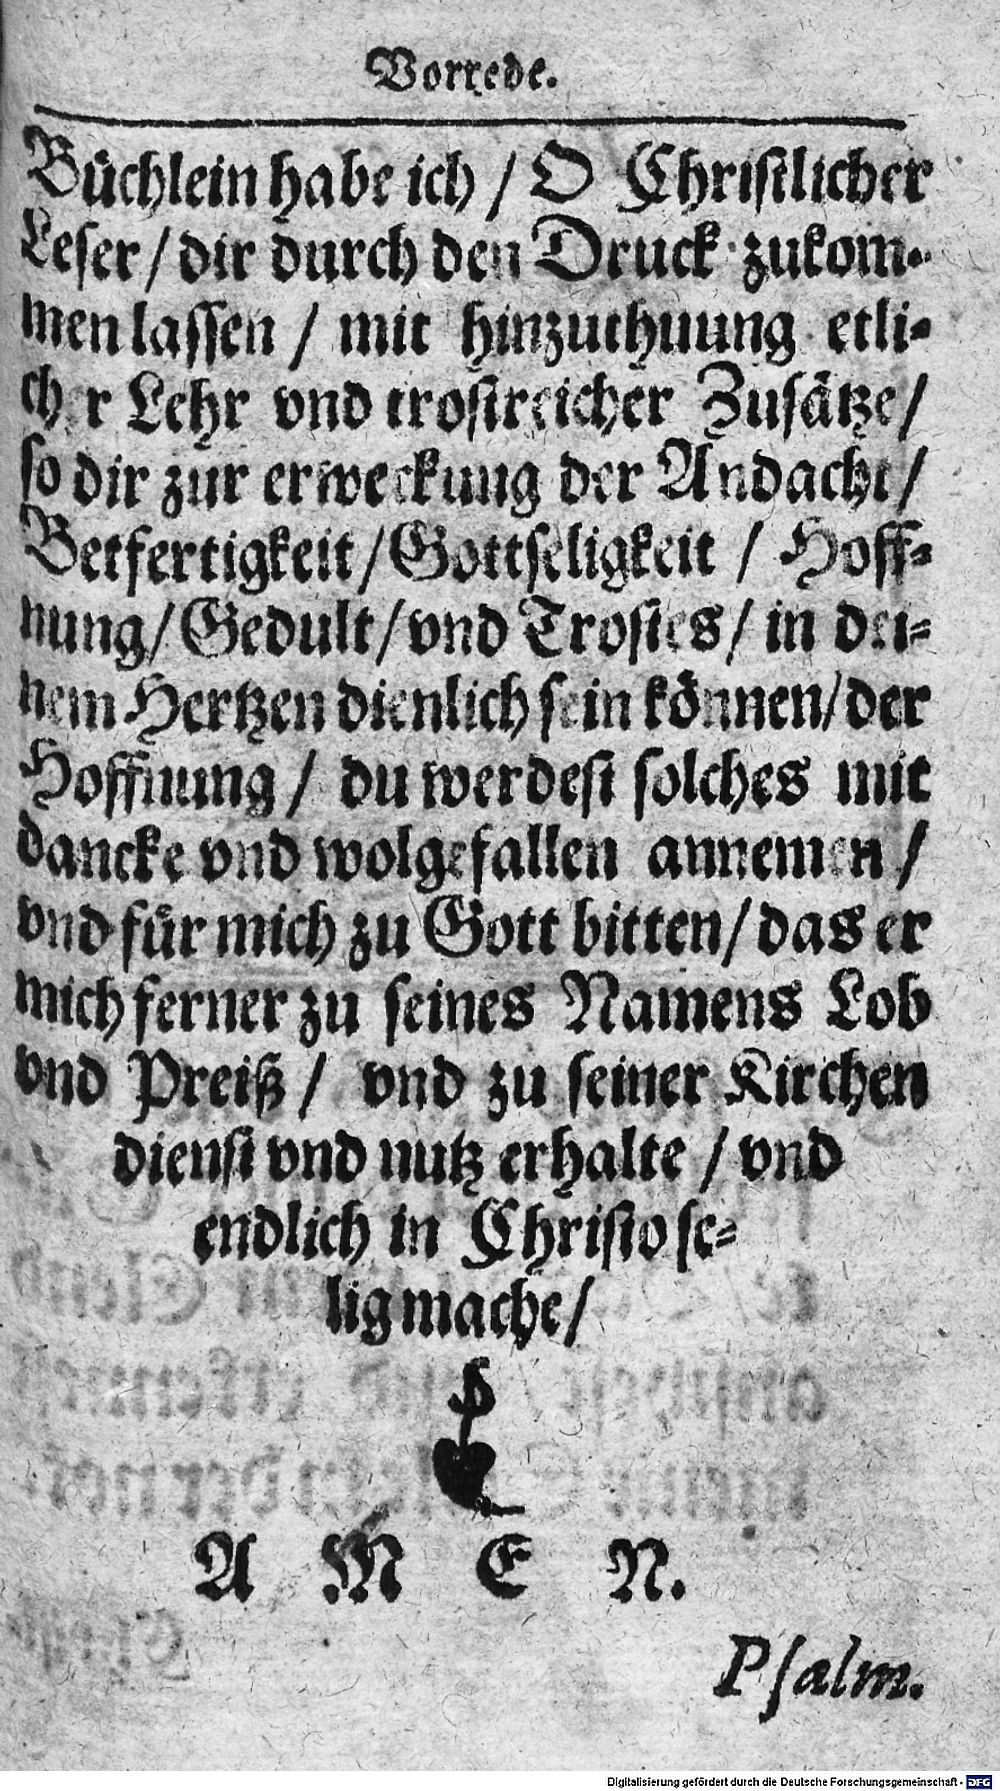 Vorrede.
Büchlein habe ich / O Christlicher
Leser / dir durch den Druck zukom⸗
men lassen / mit hinzuthuung etli⸗
cher Lehr vnd trostreicher Zusätze /
so dir zur erweckung der Andacht /
Betfertigkeit / Gottseligkeit / Hoff⸗
nung / Gedult / vnd Trostes / in dei⸗
nem Hertzen dienlich sein können / der
Hoffnung / du werdest solches mit
dancke vnd wolgefallen annemen /
vnd für mich zu Gott bitten / das er
mich ferner zu seines Namens Lob
vnd Preiß / vnd zu seiner Kirchen
dienst vnd nutz erhalte / vnd
endlich in Christo se⸗
lig mache /
A M E N.
Psalm.
Digitalisierung gefördert durch die Deutsche Forschungsgemeinschaft - DFG